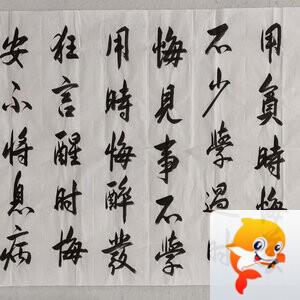 用貧時悔
不少學過
悔見事不學
用時悔醉發
狂言醒时悔
安不将息病